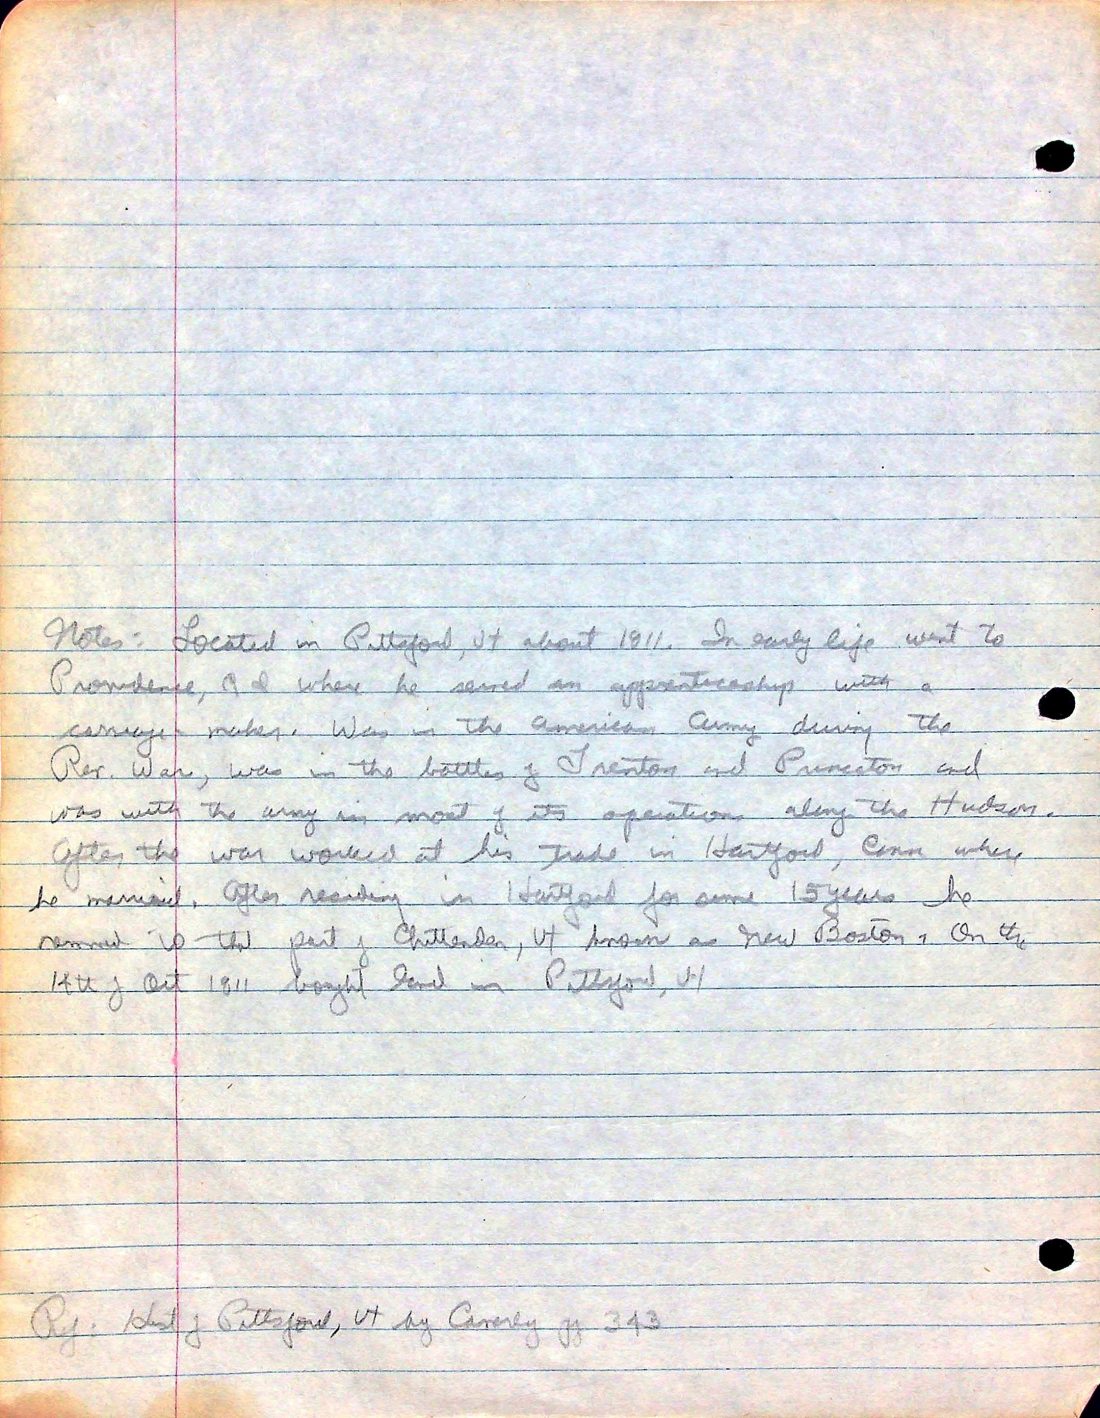 Notes: Located in Pittsford, Vt about 1811. In early life went to
Providence, R I where he served an apprenticeship with a
carriage maker. Was in the American Army during the
Rev. War, was in the battles of Trenton and Princeton and
was with the army in most of its operations along the Hudson.
After the war worked at his trade in Hartford, Conn where
he married. After residing in Hartford for some 15 years he
removed to that part of Chittenden, Vt known as New Boston. On the
14th of Oct 1811 bought land in Pittsford, Vt
Ref: Hist of Pittsford, Vt by Caverly pg 343